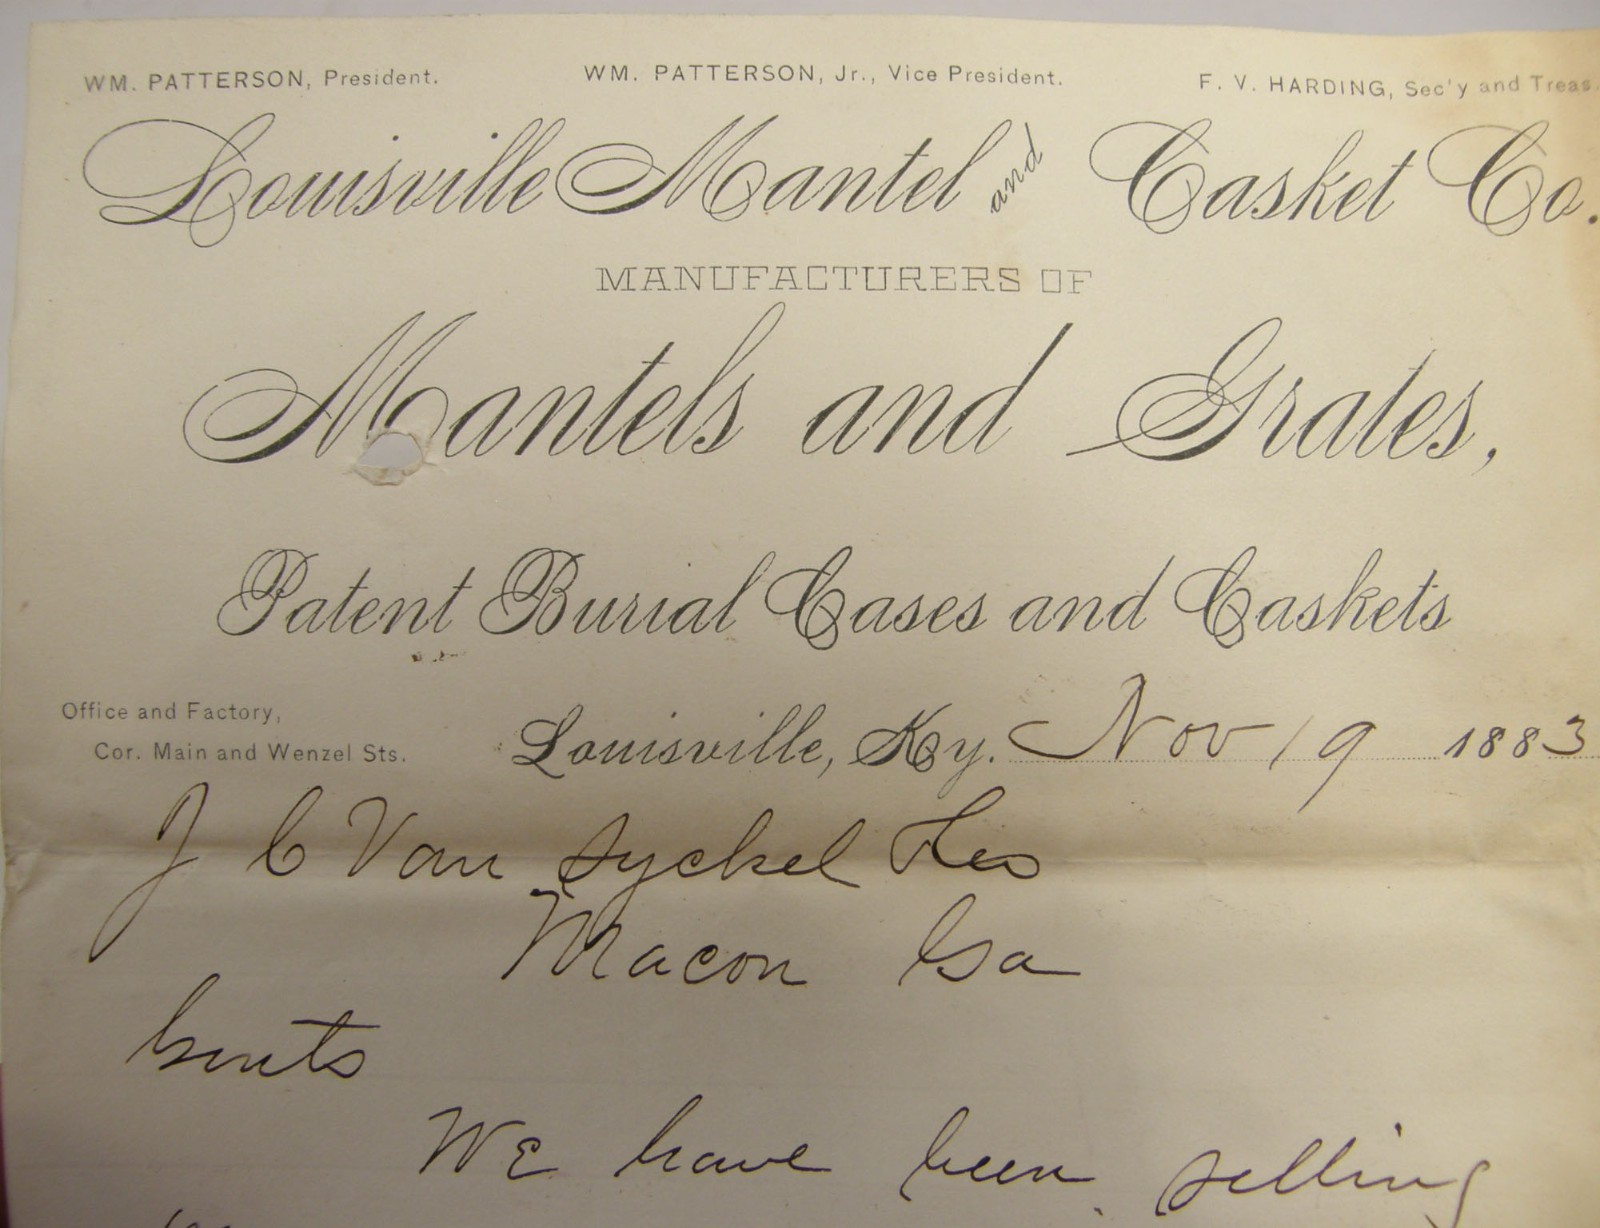 WM. PATTERSON, President. WM. PATTERSON, Jr., Vice President. F. V. HARDING, Sec'y and Treas.
Louisville Mantel and Casket Co.
MANUFACTURERS OF
Mantels and Grates,
Patent Burial Cases and Caskets
Office and Factory,
Cor. Main and Wenzel Sts.
Louisville, Ky. Nov 19 1883
J C Van Syckel
Macon Ga
Gents
We have been selling